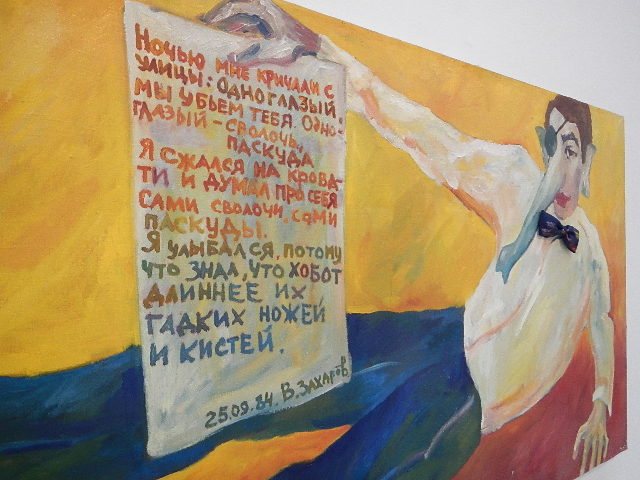 Ночью мне кричали с
улицы: Одноглазый.
мы убьем тебя. Одно-
глазый - сволочь,
паскуда
Я сжался на крова-
ти и думал про себя
Сами сволочи, сами
паскуды.
Я улыбался, потому
что знал, что хобот
длиннее их
гадких ножей
и кистей.
25.09.84. В. Захаров